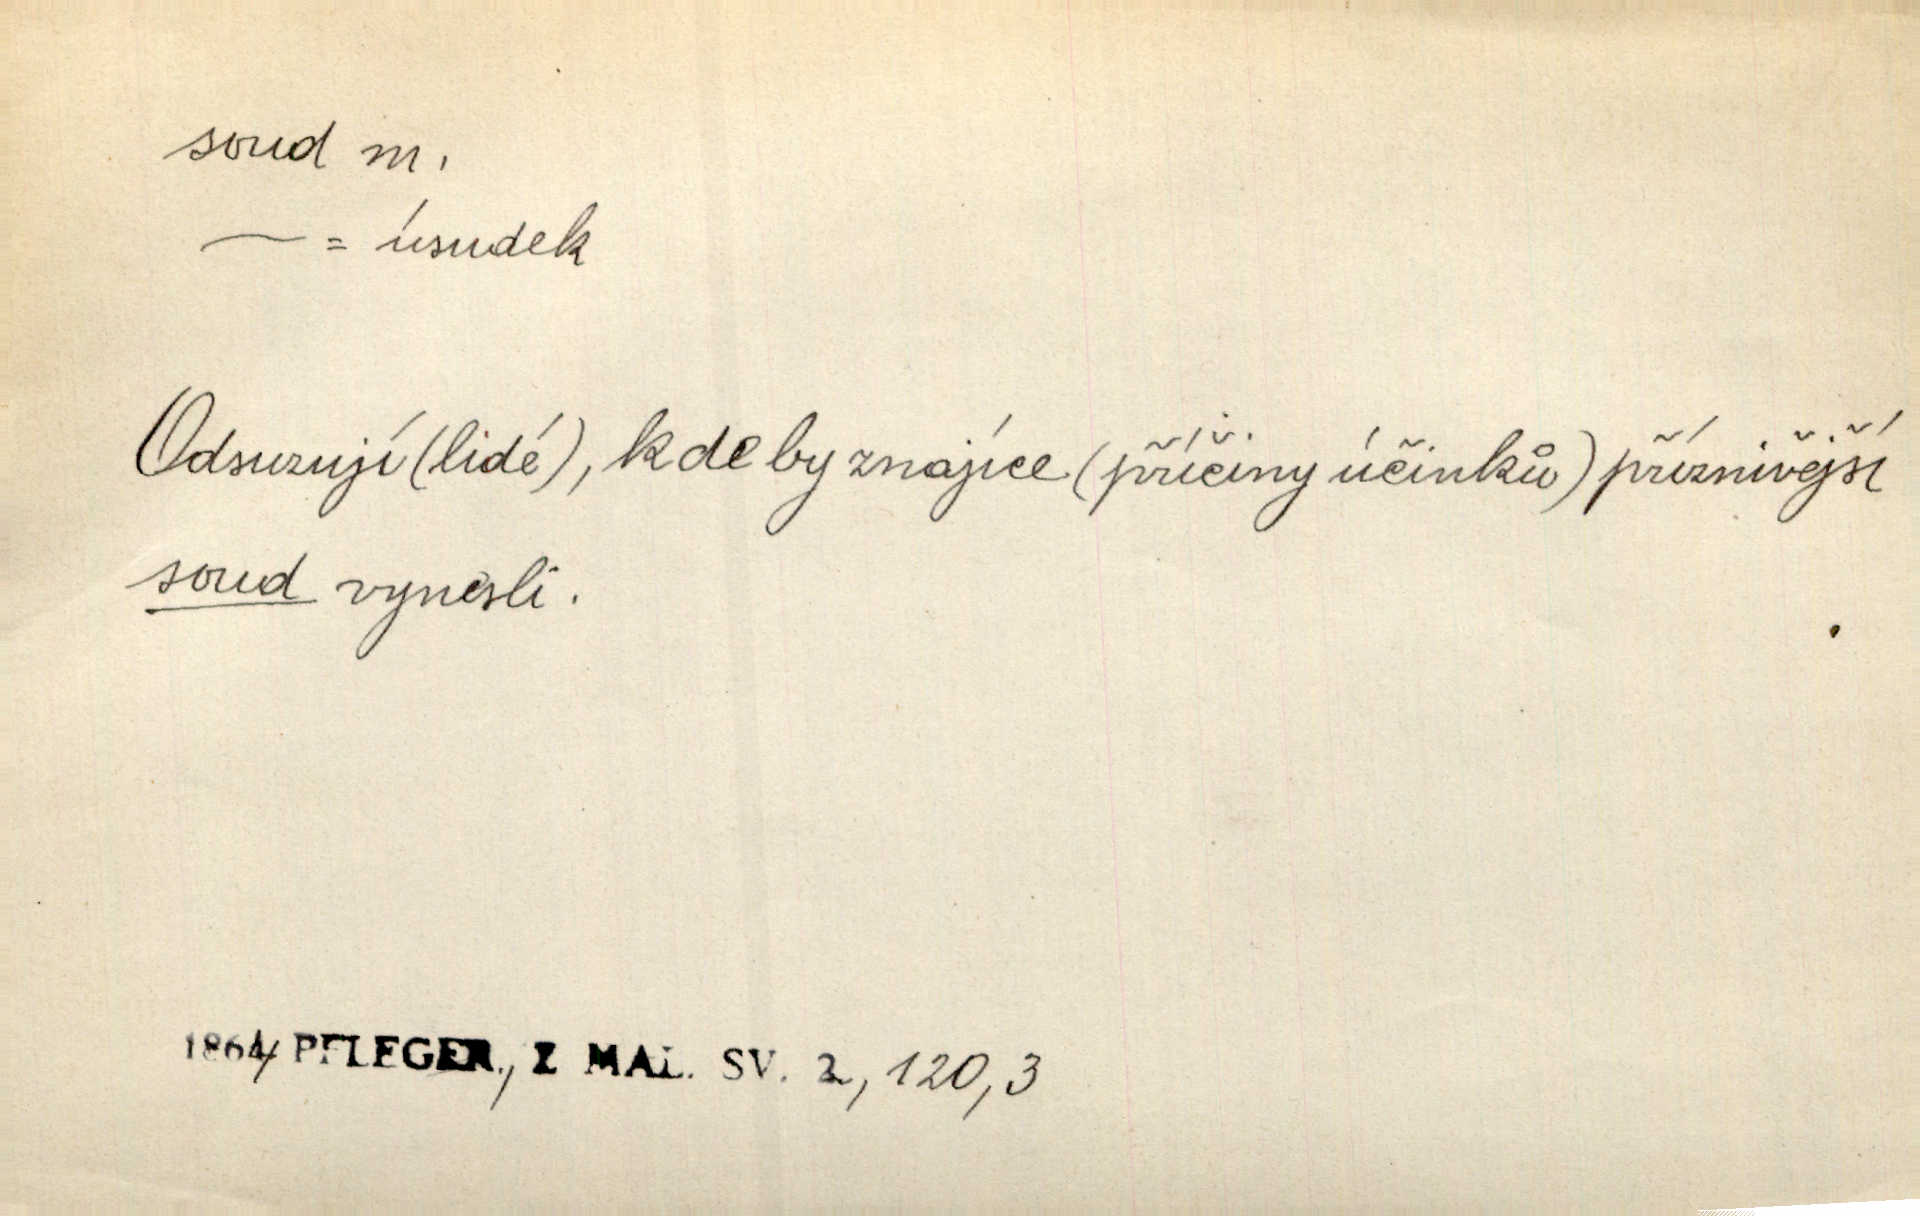 soud m.
— = úsudek
Odsuzují (lidé), kde by znajíce (příčiny účinků) příznivější
soud vynesli.
1864 PFLEGER, Z MAL. SV. 2, 120, 3